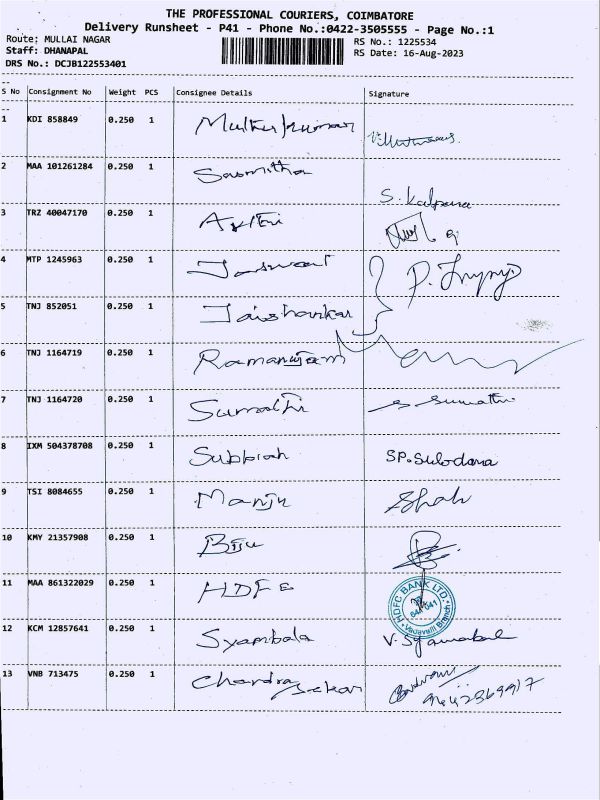 THE PROFESSIONAL COURIERS, COIMBATORE
Delivery Runsheet - P41 - Phone No.:0422-3505555 - Page No.:1
Route: MULLAI NAGAR
RS No.: 1225534
Staff: DHANAPAL
RS Date: 16-Aug-2023
DRS No.: DCJB122553401
S No Consignment No Weight PCS Consignee Details Signature
1 KDI 858849 0.250 1 Muthukumar
2 MAA 101261284 0.250 1 Sasmitha S. Kalpana
3 TRZ 40047170 0.250 1
4 MTP 1245963 0.250 1 Jaswant
5 TNJ 852051 0.250 1 Jaishankar
6 TNJ 1164719 0.250 1 Ramanujam
7 TNJ 1164720 0.250 1 Sumathi S Sumathi
8 IXM 504378708 0.250 1 Subbiah SP.Sulodana
9 TSI 8084655 0.250 1 Manju Shah
10 KMY 21357908 0.250 1 Biju
11 MAA 861322029 0.250 1 HDFC
HDFC BANK LTD.
641 041
Vadavalli Branch
12 KCM 12857641 0.250 1 Syambala V. Syamabal
13 VNB 713475 0.250 1 Chandra Sekar
9442369917